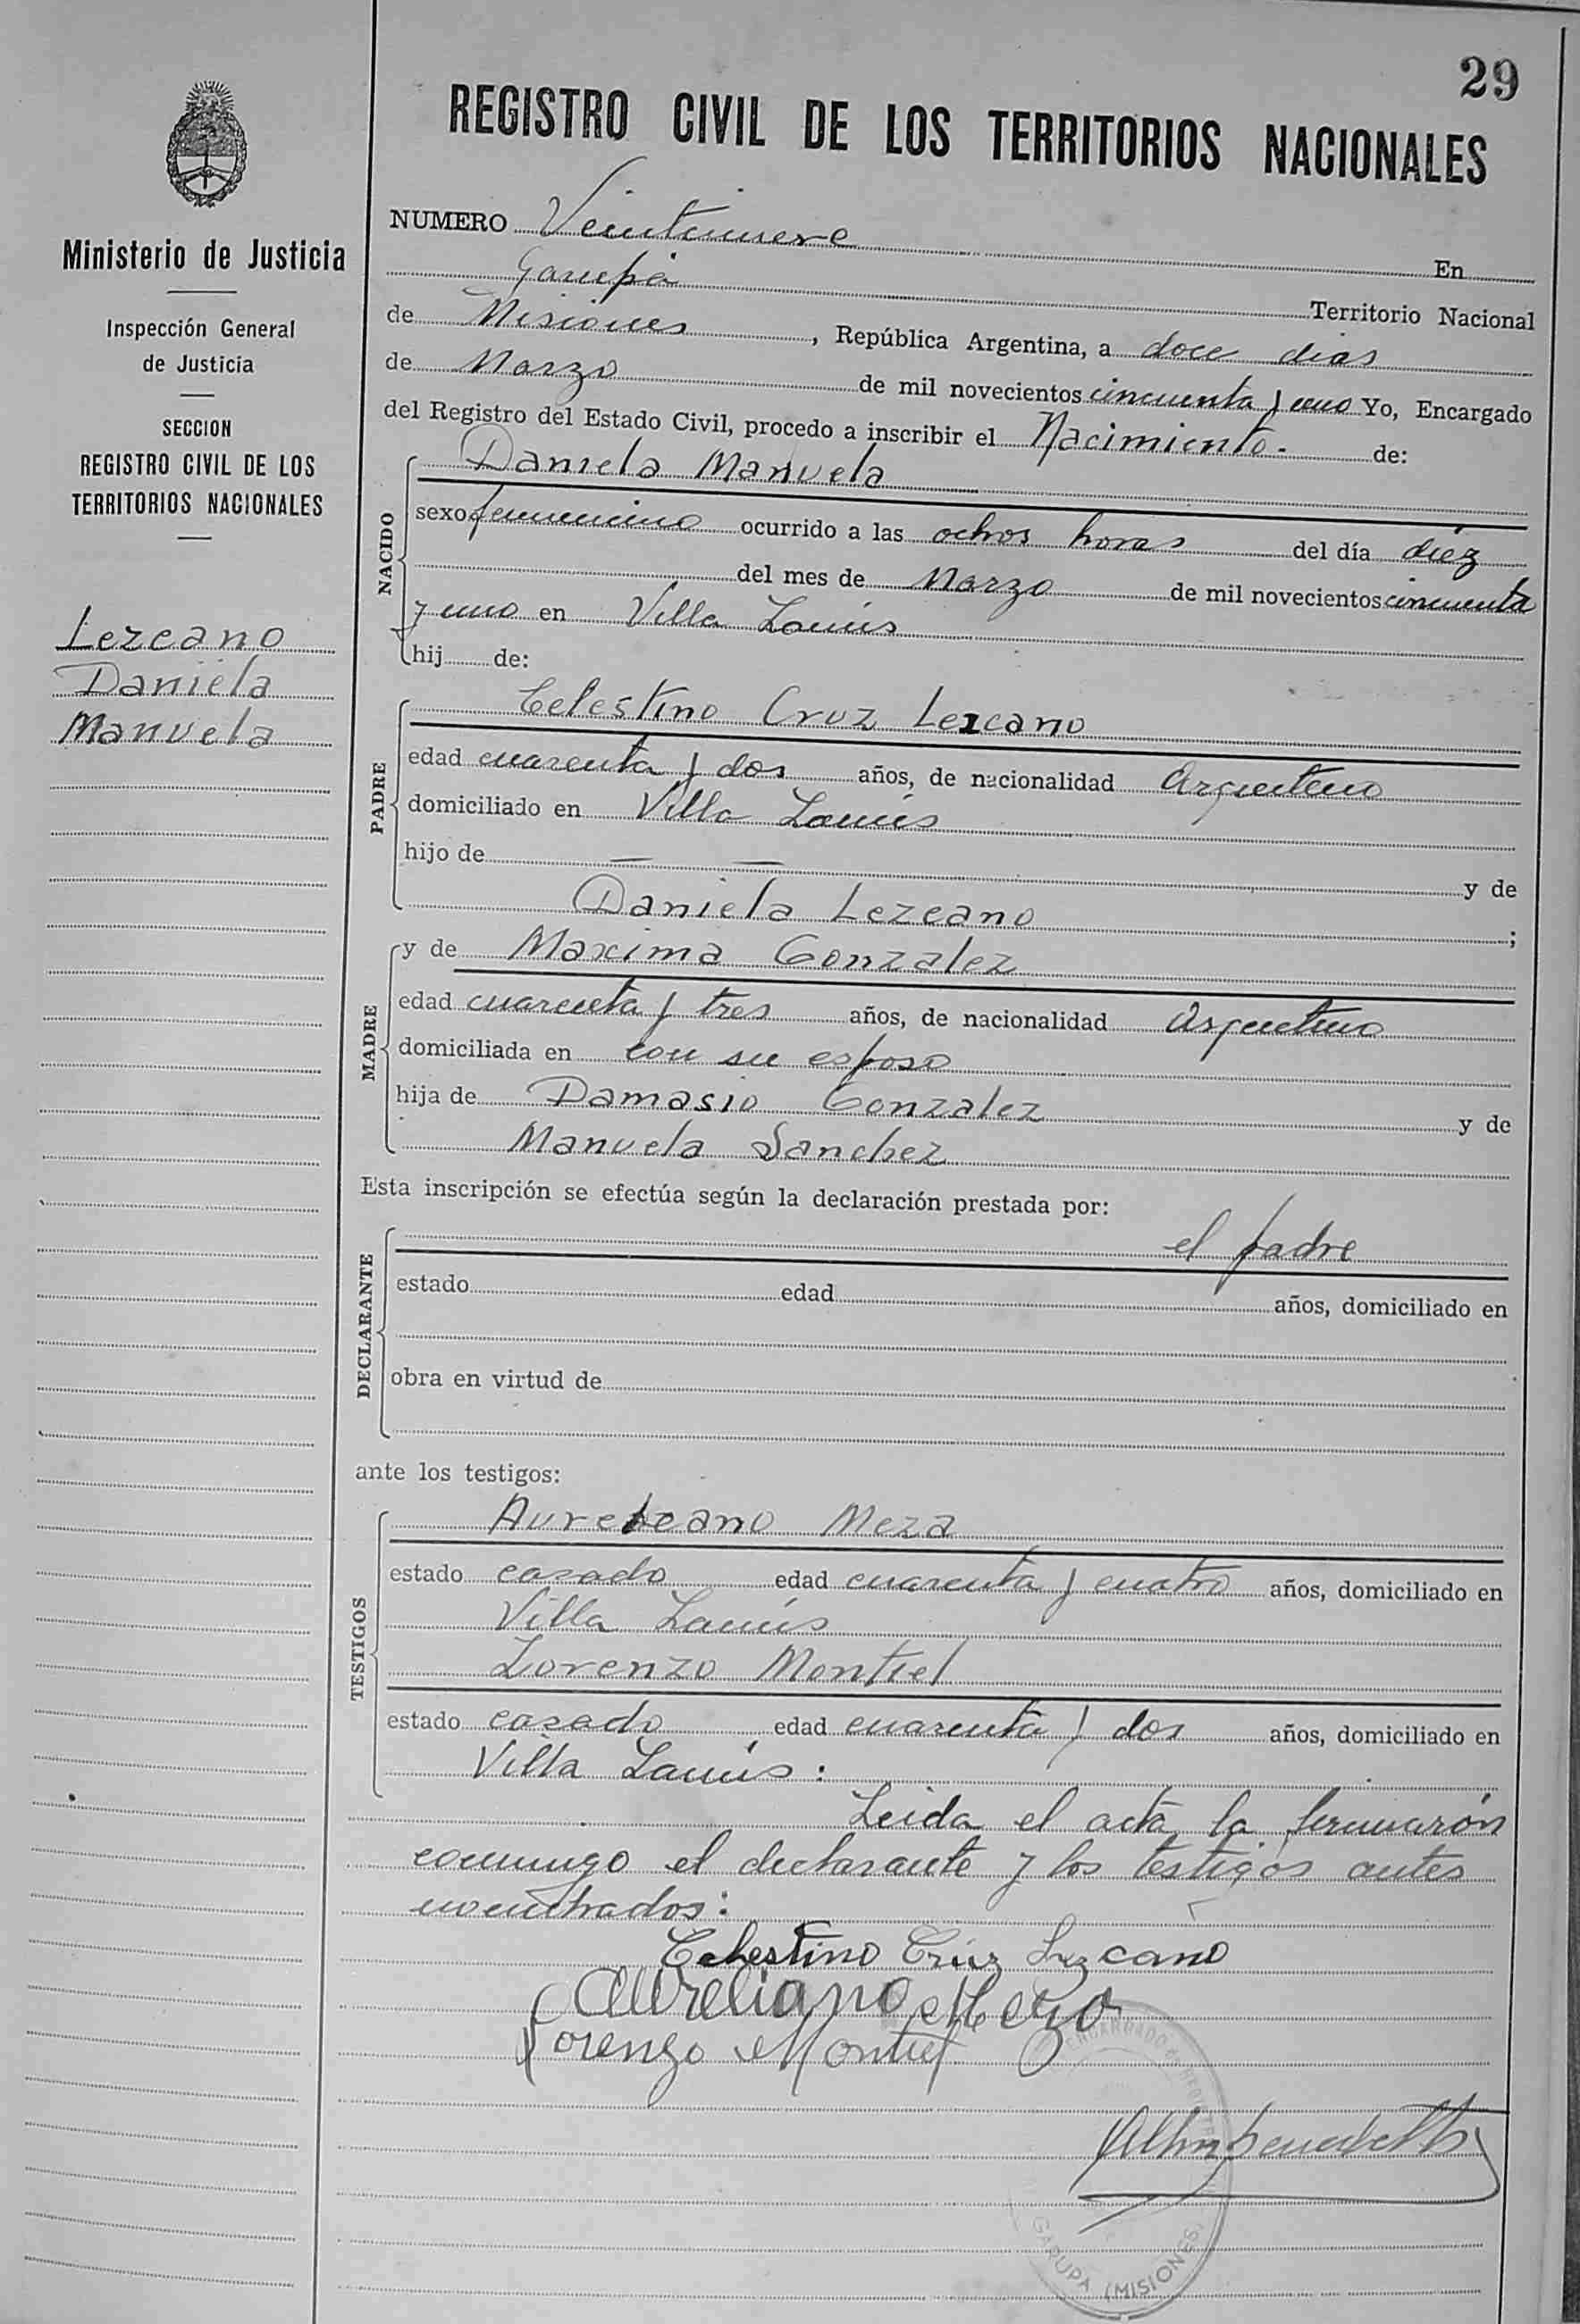 29
REGISTRO CIVIL DE LOS TERRITORIOS NACIONALES
Ministerio de Justicia
Inspección General
de Justicia
SECCION
REGISTRO CIVIL DE LOS
TERRITORIOS NACIONALES
Lezcano
Daniela
Manuela
NUMERO Veintinueve En
Garupá Territorio Nacional
de Misiones, República Argentina, a doce dias
de Marzo de mil novecientos cincuenta y uno Yo, Encargado
del Registro del Estado Civil, procedo a inscribir el Nacimiento. de:
NACIDO
Daniela Manuela
sexo femenino ocurrido a las ochos horas del día diez
del mes de Marzo de mil novecientos cincuenta
y uno en Villa Lanús
hij de:
PADRE
Celestino Cruz Lezcano
edad cuarenta y dos años, de nacionalidad Argentino
domiciliado en Villa Lanús
hijo de — — y de
Daniela Lezcano ;
MADRE
y de Maxima Gonzalez
edad cuarenta y tres años, de nacionalidad Argentina
domiciliada en con su esposo
hija de Damasio Gonzalez y de
Manuela Sanchez
Esta inscripción se efectúa según la declaración prestada por:
DECLARANTE
el padre
estado edad años, domiciliado en
obra en virtud de
ante los testigos:
TESTIGOS
Aureleano Meza
estado casado edad cuarenta y cuatro años, domiciliado en
Villa Lanús
Lorenzo Montiel
estado casado, edad cuarenta y dos años, domiciliado en
Villa Lanús:
Leida el acta, la firmarón
conmigo el declarante y los testigos antes
nombrados:
Celestino Crúz Lezcano
Aureliano Meza
Lorenzo Montiel
ENCARGADO
GARUPA (MISIONES)